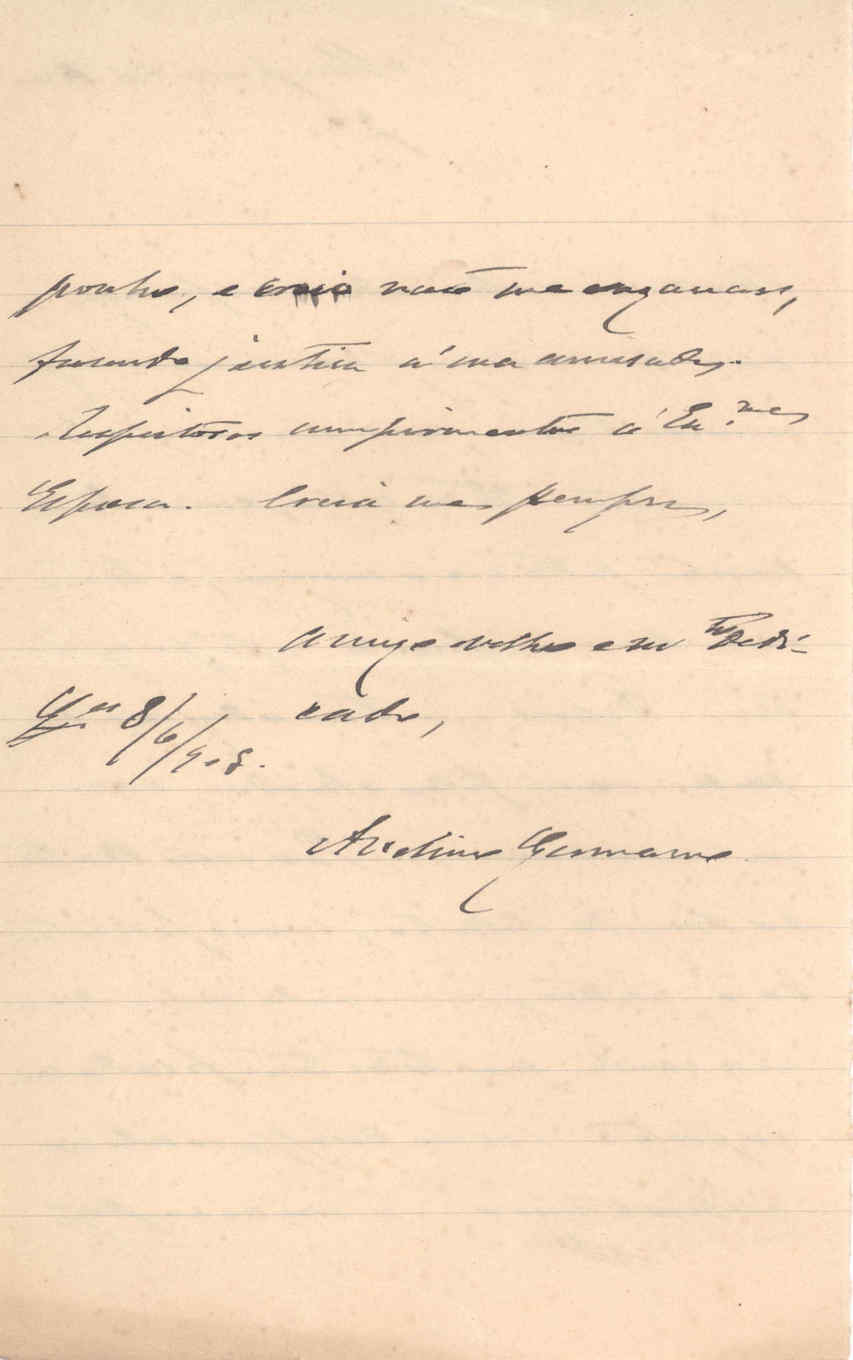 ponho, e creio não me enganar,
fazendo justiça á sua amisade.
Respeitosos cumprimentos á Ex.ma
Esposa. Creia me sempre,
amigo velho e m.to Dedi-
cado,
8/6/908.
Avelino Germano